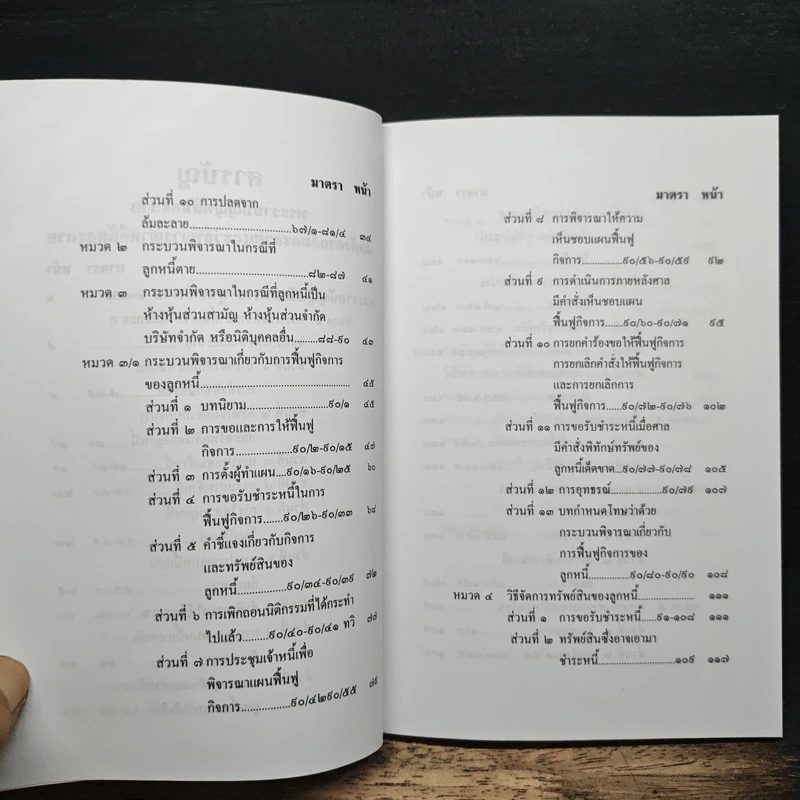 มาตรา หน้า
ส่วนที่ ๑๐ การปลดจาก
ล้มละลาย..............................๖๗/๑-๘๑/๔ ๓๔
หมวด ๒ กระบวนพิจารณาในกรณีที่
ลูกหนี้ตาย..............................๘๒-๘๗ ๔๑
หมวด ๓ กระบวนพิจารณาในกรณีที่ลูกหนี้เป็น
ห้างหุ้นส่วนสามัญ ห้างหุ้นส่วนจำกัด
บริษัทจำกัด หรือนิติบุคคลอื่น........๘๘-๙๐ ๔๓
หมวด ๓/๑ กระบวนพิจารณาเกี่ยวกับการฟื้นฟูกิจการ
ของลูกหนี้........................................ ๔๕
ส่วนที่ ๑ บทนิยาม......................๙๐/๑ ๔๕
ส่วนที่ ๒ การขอและการให้ฟื้นฟู
กิจการ...............๙๐/๒-๙๐/๑๕ ๔๗
ส่วนที่ ๓ การตั้งผู้ทำแผน....๙๐/๑๖-๙๐/๒๕ ๖๐
ส่วนที่ ๔ การขอรับชำระหนี้ในการ
ฟื้นฟูกิจการ.......๙๐/๒๖-๙๐/๓๓ ๖๘
ส่วนที่ ๕ คำชี้แจงเกี่ยวกับกิจการ
และทรัพย์สินของ
ลูกหนี้..............๙๐/๓๔-๙๐/๓๙ ๗๒
ส่วนที่ ๖ การเพิกถอนนิติกรรมที่ได้กระทำ
ไปแล้ว..........๙๐/๔๐-๙๐/๔๑ ทวิ ๗๗
ส่วนที่ ๗ การประชุมเจ้าหนี้เพื่อ
พิจารณาแผนฟื้นฟู
กิจการ................๙๐/๔๒๙๐/๕๕ ๗๙
มาตรา หน้า
ส่วนที่ ๘ การพิจารณาให้ความ
เห็นชอบแผนฟื้นฟู
กิจการ............๙๐/๕๖-๙๐/๕๙ ๙๒
ส่วนที่ ๙ การดำเนินการภายหลังศาล
มีคำสั่งเห็นชอบแผน
ฟื้นฟูกิจการ......๙๐/๖๐-๙๐/๗๑ ๙๕
ส่วนที่ ๑๐ การยกคำร้องขอให้ฟื้นฟูกิจการ
การยกเลิกคำสั่งให้ฟื้นฟูกิจการ
และการยกเลิกการ
ฟื้นฟูกิจการ......๙๐/๗๒-๙๐/๗๖ ๑๐๒
ส่วนที่ ๑๑ การขอรับชำระหนี้เมื่อศาล
มีคำสั่งพิทักษ์ทรัพย์ของ
ลูกหนี้เด็ดขาด...๙๐/๗๗-๙๐/๗๘ ๑๐๕
ส่วนที่ ๑๒ การอุทธรณ์....................๙๐/๗๙ ๑๐๗
ส่วนที่ ๑๓ บทกำหนดโทษว่าด้วย
กระบวนพิจารณาเกี่ยวกับ
การฟื้นฟูกิจการของ
ลูกหนี้..............๙๐/๘๐-๙๐/๙๐ ๑๐๘
หมวด ๔ วิธีจัดการทรัพย์สินของลูกหนี้...................... ๑๑๑
ส่วนที่ ๑ การขอรับชำระหนี้......๙๑-๑๐๘ ๑๑๑
ส่วนที่ ๒ ทรัพย์สินซึ่งอาจเอามา
ชำระหนี้..........................๑๐๙ ๑๑๗